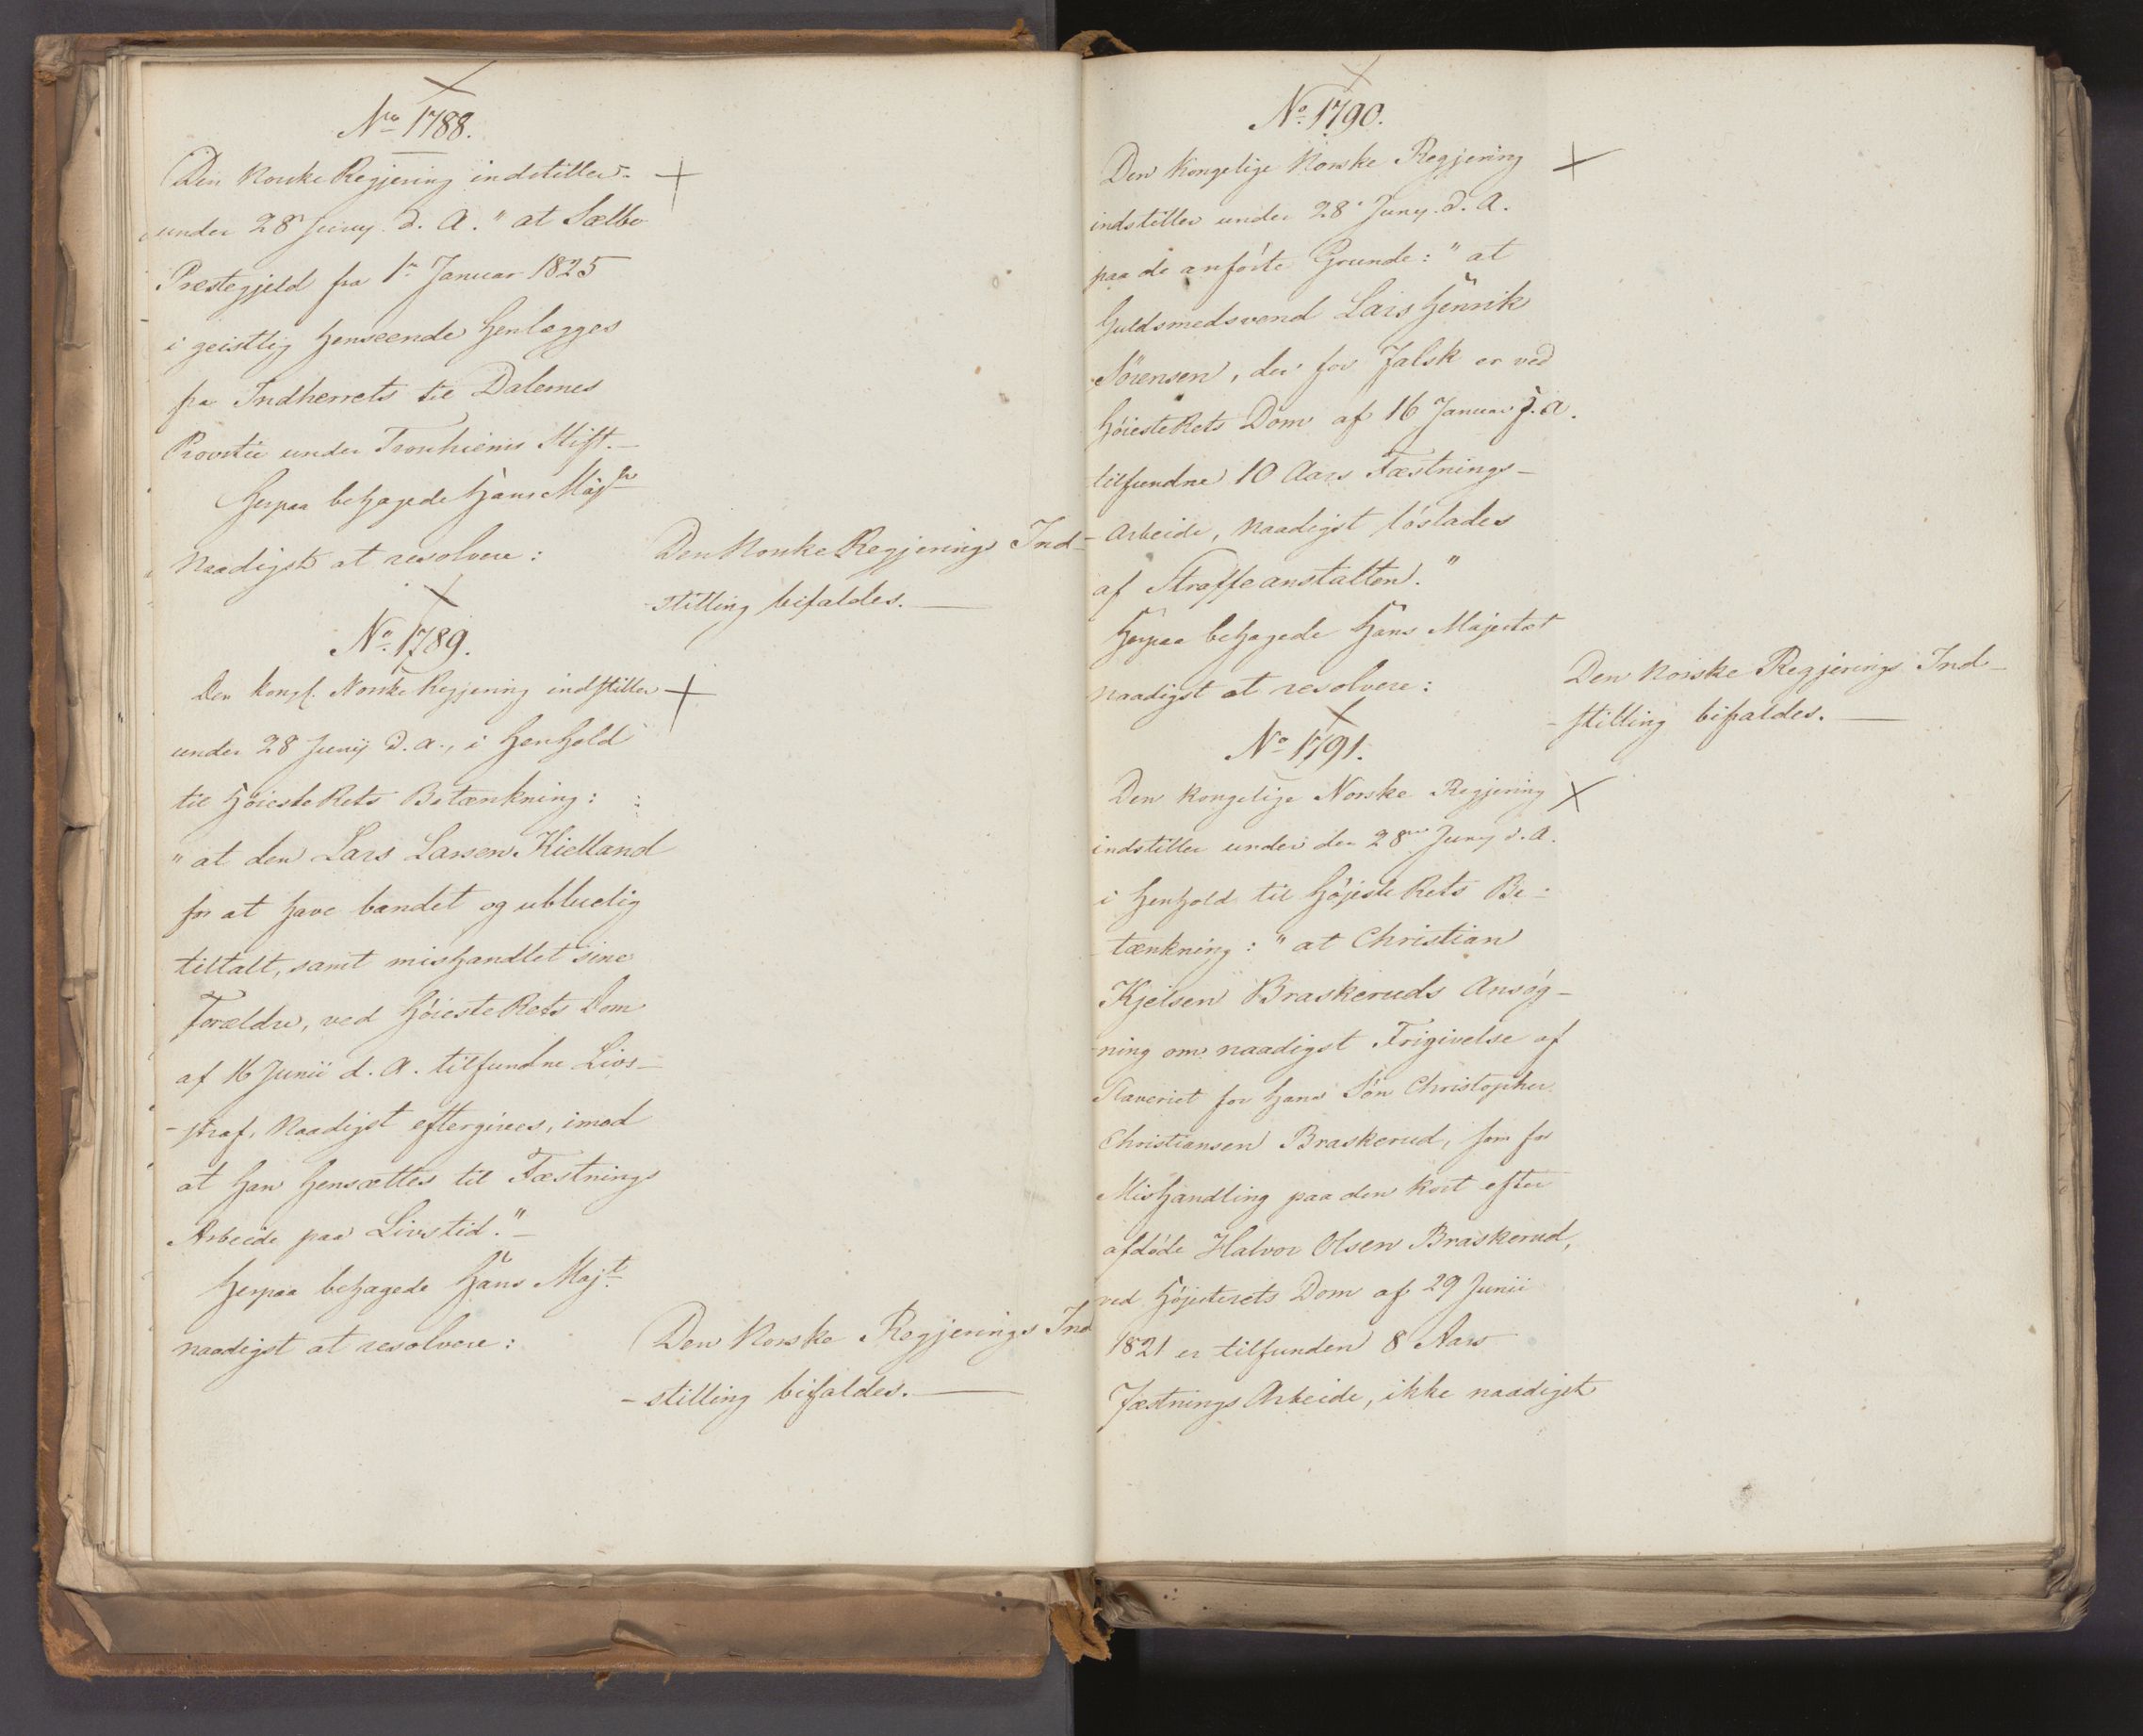 No 1788.
Den Norske Regjering indstiller
under 28 Juny d. A. "at Sælbo
Præstegjeld fra 1ste Januar 1825
i geistlig Henseende henlægges
fra Indherrets til Dalernes
Provstie under Tronhiems Stift.—
Herpaa behagede Hans Majst
Naadigst at resolvere:
Den Norske Regjerings Ind-
-stilling bifaldes.—
No 1789.
Den kongl. Norske Regjering indstiller
under 28 Junij d. a., i Henhold
til HöiesteRets Betænkning:
"at den Lars Larsen Kielland
for at have bandet og ubluelig
tiltalt, samt mishandlet sine
Forældre, ved HöiesteRets Dom
af 16 Junii d. A. tilfundne Livs-
-straf, Naadigst eftergives, imod
at han hensættes til Fæstnings
Arbeide paa Livstid."—
Herpaa behagede Hans Majt
naadigst at resolvere:
Den Norske Regjerings Ind
-stilling bifaldes.—
No 1790.
Den Kongelige Norske Regjering
indstiller under 28 Juny d. A.
paa de anförte Grunde: "at
Guldsmedsvend Lars Henrik
Sörensen, der for Falsk er ved
HöiesteRets Dom af 16 Januar f. A.
tilfundne 10 Aars Fæstnings-
-Arbeide, Naadigst löslades
af Straffeanstalten."
Herpaa behagede Hans Majestæt
naadigst at resolvere:
Den Norske Regjerings Ind-
-stilling bifaldes.—
No 1791.
Den kongelige Norske Regjering
indstiller under den 28de Juny d. A.
i Henhold til Höjeste Rets Be-
tænkning: "at Christian
Kjelsen Braskeruds Ansög-
-ning om naadigst Frigivelse af
Slaveriet for hans Sön Christopher
Christiansen Braskerud, som for
Mishandling paa den kort efter
afdöde Halvor Olsen Braskerud,
ved Höjesterets Dom af 29 Junii
1821 er tilfunden 8 Aars
Fæstnings Arbeide, ikke naadigst